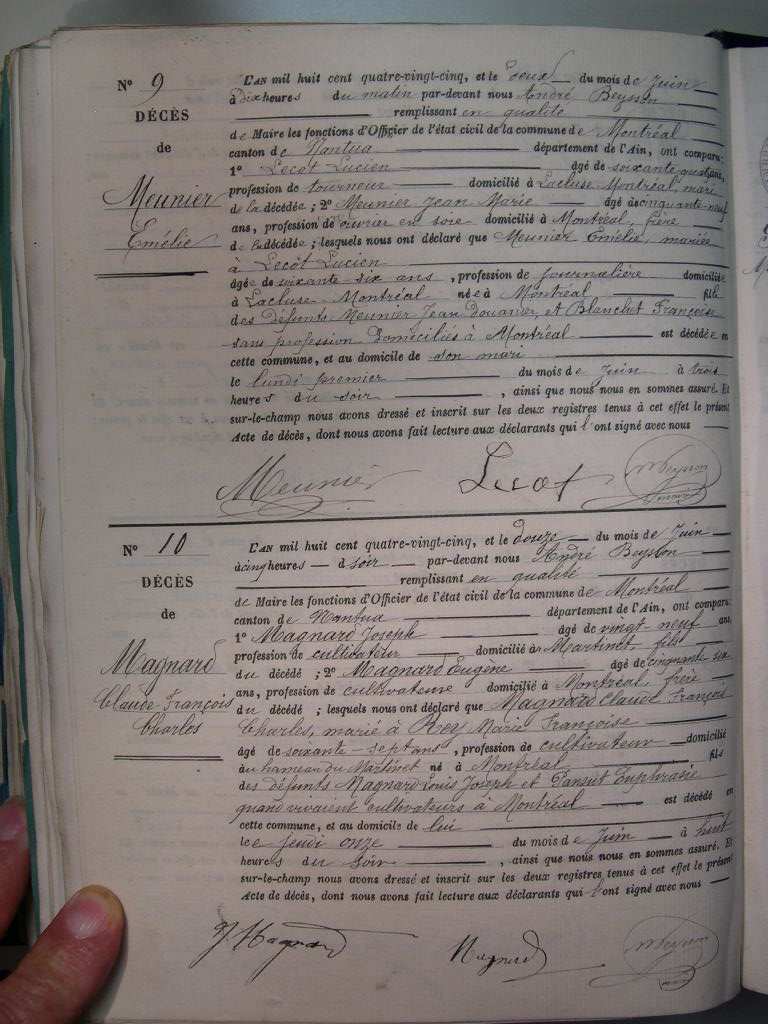 N° 9
DÉCÈS
de
Meunier
Emélie
L'AN mil huit cent quatre-vingt-cinq, et le deux du mois de Juin
à dix heures du matin par-devant nous André Beysson
remplissant en qualité
de Maire les fonctions d'Officier de l'état civil de la commune de Montréal
canton de Nantua département de l'Ain, ont comparu:
1° Lecot Lucien âgé de soixante quatre ans,
profession de tourneur domicilié à Lacluse-Montréal, mari
de la décédée; 2° Meunier Jean Marie âgé de cinquante-neuf
ans, profession d'ouvrier en soie domicilié à Montréal, frère
de la décédée; lesquels nous ont déclaré que Meunier Emélie, mariée
à Lecot Lucien
âgée de soixante-six ans, profession de journalière domiciliée
à Lacluse-Montréal née à Montréal fille
des défunts Meunier Jean Douanier et Blanchet Françoise
sans profession domiciliés à Montréal est décédée en
cette commune, et au domicile de son mari
le lundi premier du mois de Juin à trois
heures du soir, ainsi que nous nous en sommes assuré. Et
sur-le-champ nous avons dressé et inscrit sur les deux registres tenus à cet effet le présent
Acte de décès, dont nous avons fait lecture aux déclarants qui l'ont signé avec nous
Meunier Lecot Beysson
N° 10
DÉCÈS
de
Magnard
Claude François
Charles
L'AN mil huit cent quatre-vingt-cinq, et le douze du mois de Juin
à cinq heures d soir par-devant nous André Beysson
remplissant en qualité
de Maire les fonctions d'Officier de l'état civil de la commune de Montréal
canton de Nantua département de l'Ain, ont comparu:
1° Magnard Joseph âgé de vingt-neuf ans
profession de cultivateur domicilié à Martinet, fils
du décédé; 2° Magnard Eugène âgé de cinquante six
ans, profession de cultivateur domicilié à Montréal, frère
du décédé; lesquels nous ont déclaré que Magnard Claude François
Charles, marié à Rey Marie Françoise
âgé de soixante-sept ans, profession de cultivateur domicilié
au hameau du Martinet né à Montréal fils
des défunts Magnard Louis Joseph et Pansut Euphrasie
quand vivaient cultivateurs à Montréal est décédé en
cette commune, et au domicile de lui
le jeudi onze du mois de Juin à huit
heures du soir, ainsi que nous nous en sommes assuré. Et
sur-le-champ nous avons dressé et inscrit sur les deux registres tenus à cet effet le présent
Acte de décès, dont nous avons fait lecture aux déclarants qui l'ont signé avec nous
J. Magnard Magnard Beysson